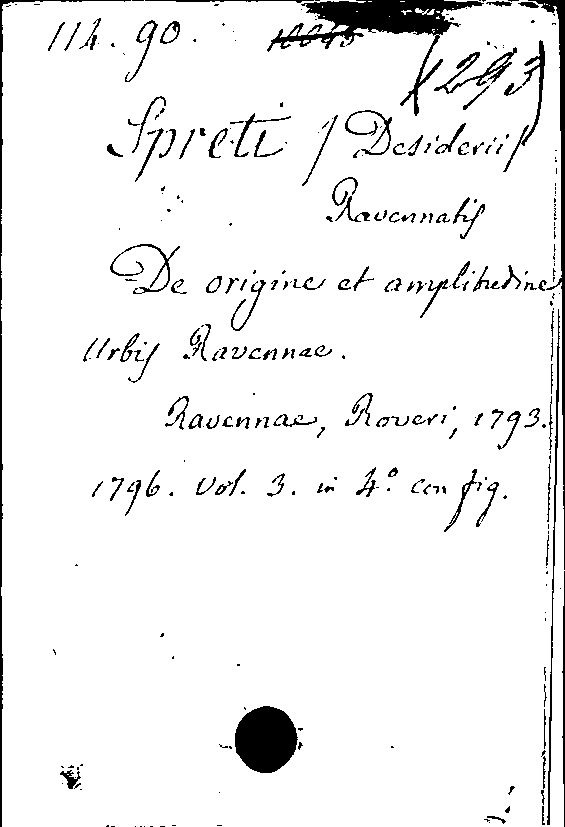 114. 90.
(293)
Spreti / Desiderii /
Ravennatis
De origine et amplitudine
Urbis Ravennae.
Ravennae, Roveri, 1793.
1796. Vol. 3. in 4.º con fig.